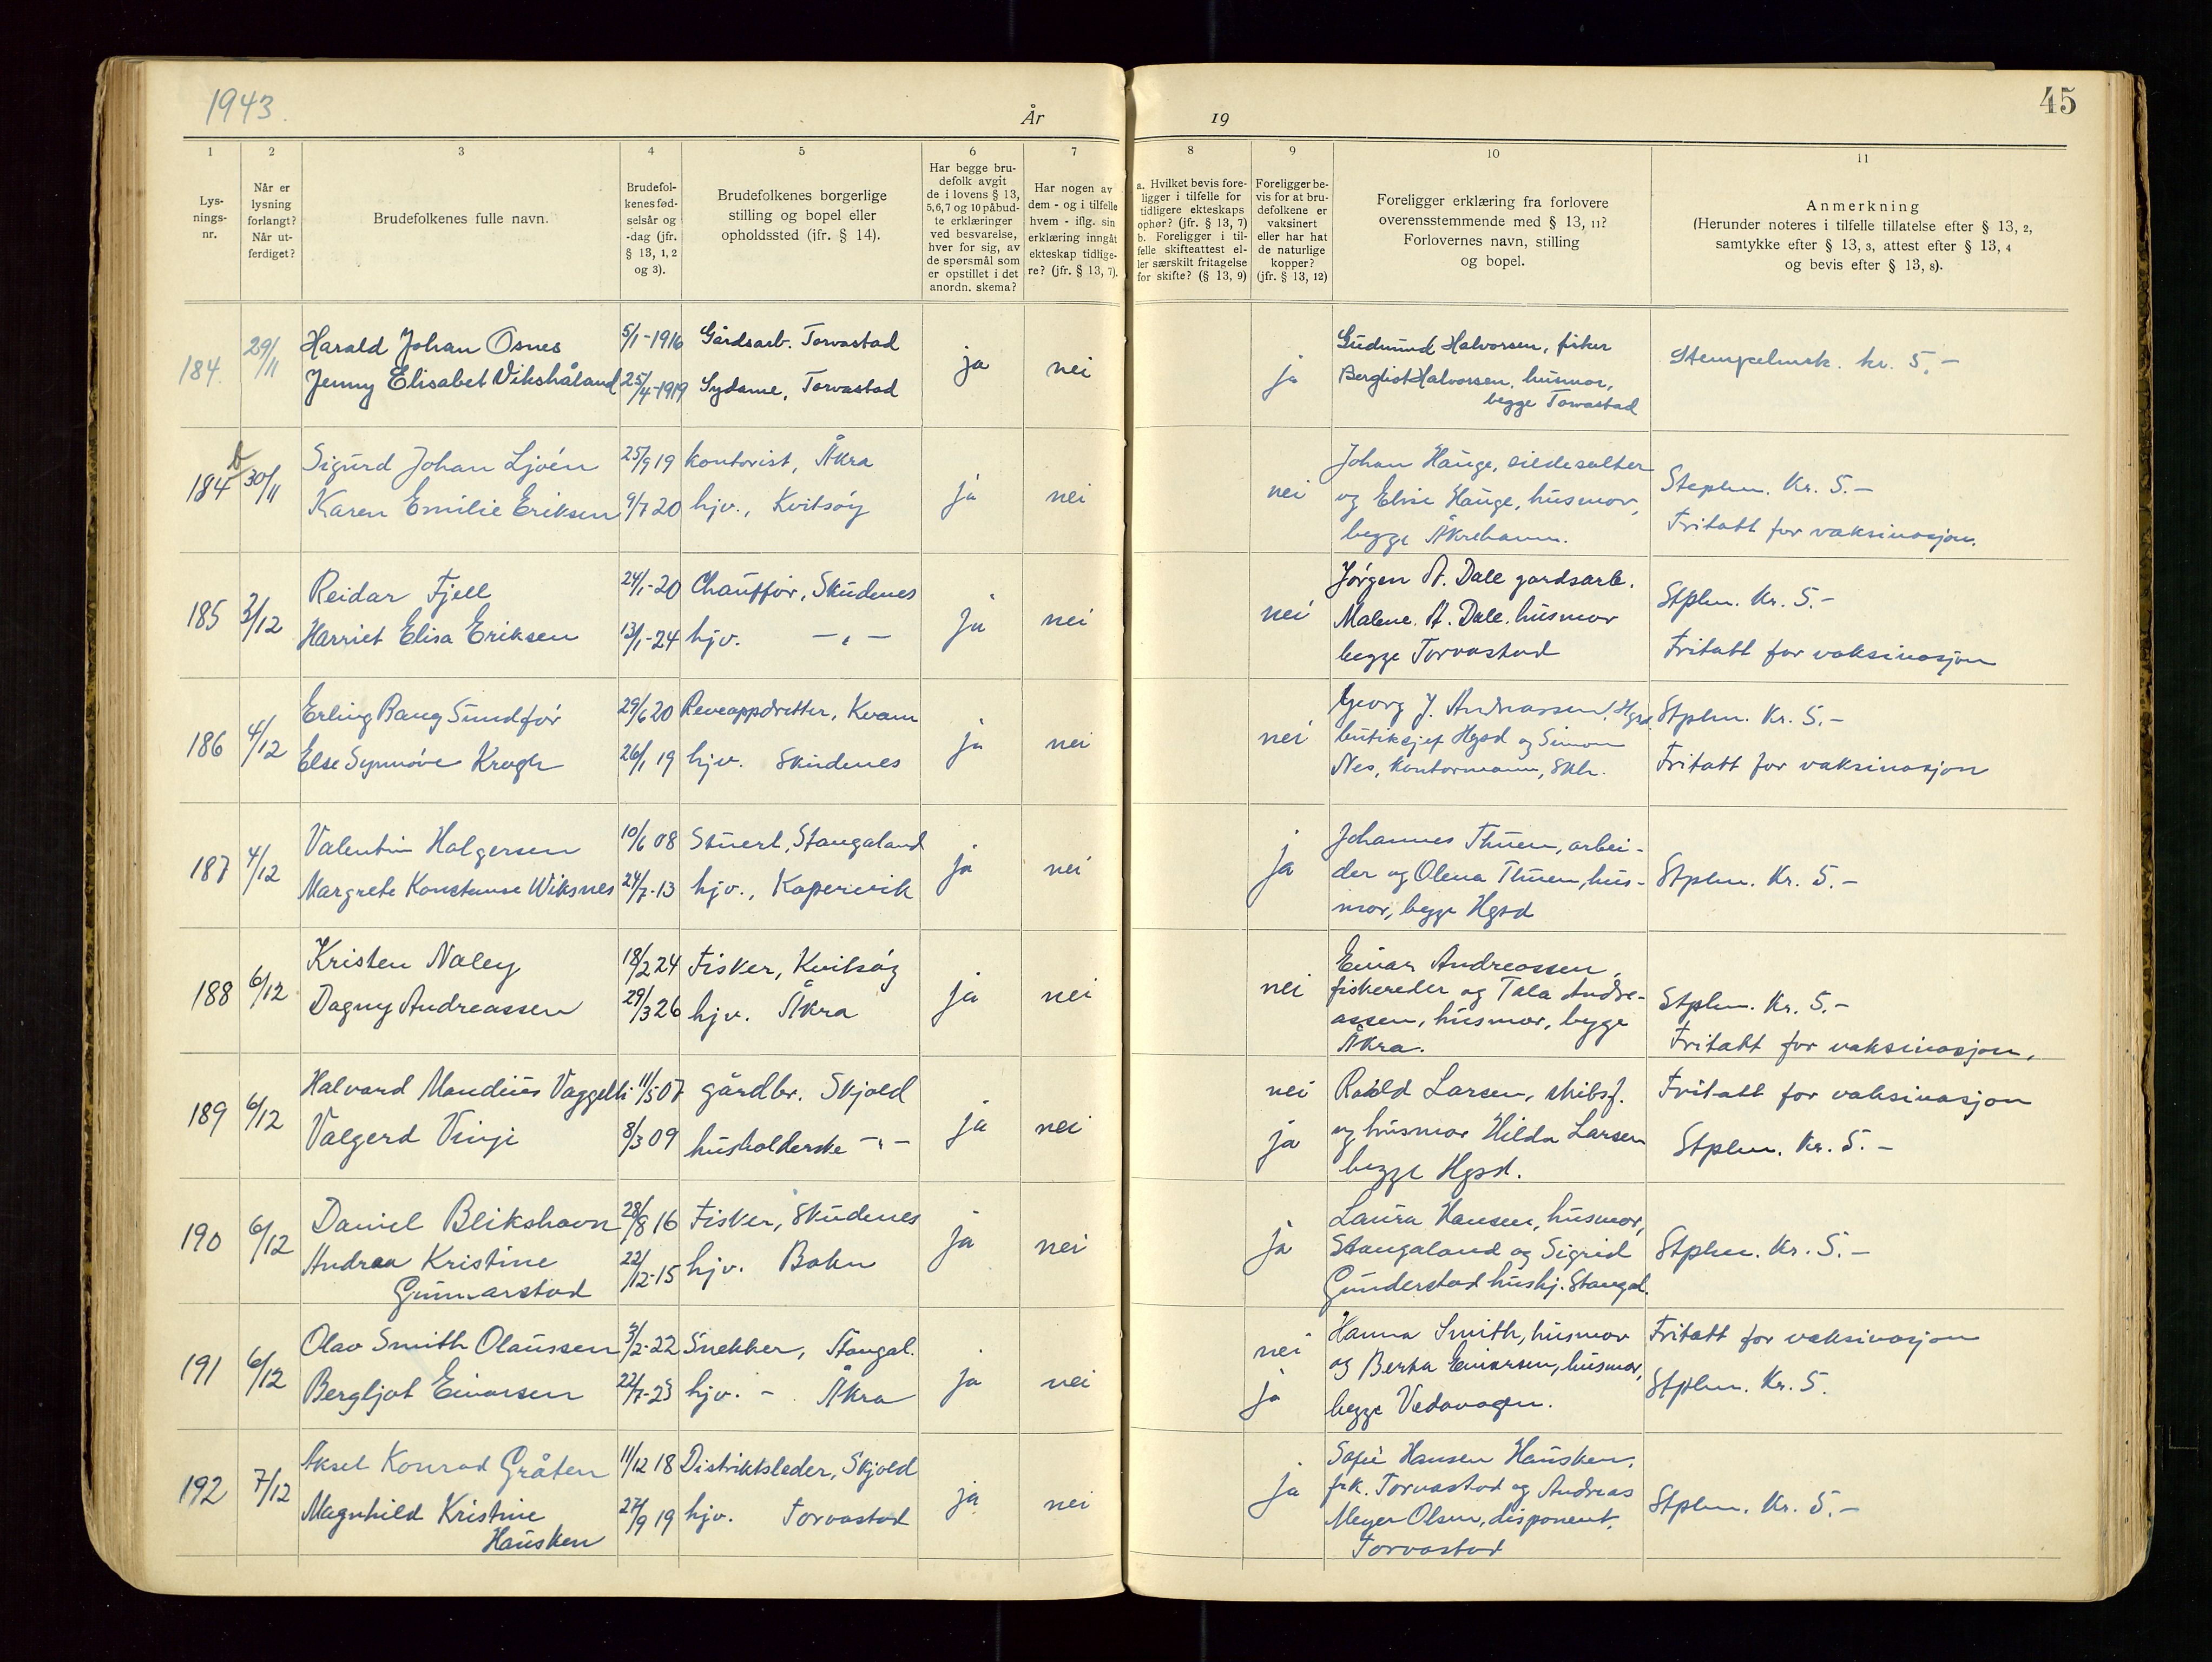 1943.
År
19
45
1
2
3
4
5
6
7
8
9
10
11
Lys-
nings-
nr.
Når er
lysning
forlangt?
Når ut-
ferdiget?
Brudefolkenes fulle navn.
Brudefol-
kenes fød-
selsår og
-dag (jfr.
§ 13, 1, 2
og 3).
Brudefolkenes borgerlige
stilling og bopel eller
opholdssted (jfr. § 14).
Har begge bru-
defolk avgit
de i lovens § 13,
5, 6, 7 og 10 påbud-
te erklæringer
ved besvarelse,
hver for sig, av
de spørsmål som
er opstillet i det
anordn. skema?
Har nogen av
dem - og i tilfelle
hvem - iflg. sin
erklæring inngåt
ekteskap tidlige-
re? (jfr. § 13, 7).
a. Hvilket bevis fore-
ligger i tilfelle for
tidligere ekteskaps
ophør? (jfr. § 13, 7)
b. Foreligger i til-
felle skifteattest el-
ler særskilt fritagelse
for skifte? (§ 13, 9)
Foreligger be-
vis for at bru-
defolkene er
vaksinert
eller har hat
de naturlige
kopper?
(jfr. § 13, 12)
Foreligger erklæring fra forlovere
overensstemmende med § 13, 11?
Forlovernes navn, stilling
og bopel.
Anmerkning
(Herunder noteres i tilfelle tillatelse efter § 13, 2,
samtykke efter § 13, 3, attest efter § 13, 4
og bevis efter § 13, 8).
184. 29/11
Harald Johan Osnes 5/1-1916 Gårdsarb. Torvastad
Jenny Elisabet Vikshåland 25/4-1919 Sydame, Torvastad
ja nei ja
Gudmund Halvorsen, fisker
Bergliot Halvorsen, husmor,
begge Torvastad
Stempelmrk. kr. 5,-
184 b 30/11
Sigurd Johan Ljoén 25/9 19 kontorist, Åkra
Karen Emilie Eriksen 9/7 20 hjv., Kvitsøy
ja nei nei
Johan Hauge, sildesalter
og Elise Hauge, husmor,
begge Åkrehamn.
Steplm. Kr. 5.-
Fritatt for vaksinasjon.
185 3/12
Reidar Fjell 24/1-20 Chauffør, Skudenes
Harriet Elisa Eriksen 13/1-24 hjv. -"-
ja nei nei
Jørgen A. Dale gardsarb.
Malene A. Dale. husmor
begge Torvastad
Stplm. Kr. 5.-
Fritatt for vaksinasjon
186 4/12
Erling Bang Sundfør 29/6 20 Reveoppdretter, Kvam
Else Synnøve Krogh 26/1 19 hjv. Skudenes
ja nei nei
Georg J. Andreassen, Hgsd.
butiksjef Hgsd og Simon
Nes, kontormann, Skh.
Stplm. Kr. 5.-
Fritatt for vaksinasjon
187 4/12
Valentin Holgersen 10/6 08 Stuert, Stangaland
Margrete Konstanse Wiksnes 24/7-13 hjv., Kopervik
ja nei ja
Johannes Thuen, arbei-
der og Olena Thuen, hus-
mor, begge Hgsd
Stplm. Kr. 5.-
188 6/12
Kristen Naley 18/2 24 Fisker, Kvitsøy
Dagny Andreassen 29/3 26 hjv. Åkra
ja nei nei
Einar Andreassen,
fiskereder og Tala Andre-
assen, husmor, begge
Åkra.
Stplm. Kr. 5.-
Fritatt for vaksinasjon.
189 6/12
Halvard Mandius 11/5 07 gårdbr. Skjold
Valgerd Vinje 8/3 09 husholderske -"-
ja nei nei
ja
Larsen, skibsf.
og husmor Hilda Larsen
begge Hgsd.
Fritatt for vaksinasjon
Stplm. Kr. 5.-
190 6/12
Daniel Blikshavn 28/8 16 Fisker, Skudenes
Andrea Kristine 22/12-15 hjv. Bokn
Gunnarstad
ja nei ja
Laura Hansen, husmor,
Stangaland og Sigrid
Gunderstad hushj. Stangal.
Stplm. Kr. 5.-
191 6/12
Olav Smith Olaussen 3/2-22 Snekker, Stangal.
Bergljot Einarsen 22/7-23 hjv. - Åkra
ja nei nei
ja
Hanna Smith, husmor
og Berta Einarsen, husmor,
begge Vedavågen.
Fritatt for vaksinasjon
Stplm. Kr. 5.
192 7/12
Aksel Konrad Gråten 11/12 18 Distriktsleder, Skjold
Magnhild Kristine 27/9 19 hjv. Torvastad
Hausken
ja nei ja
Sofie Hansen Hausken,
frk. Torvastad og Andreas
Meyer Olsen, disponent,
Torvastad
Stplm. Kr. 5.-